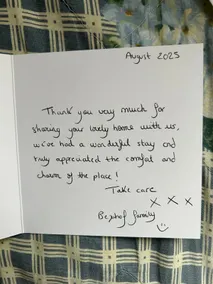 August 2025
Thank you very much for
sharing your lovely home with us,
we've had a wonderful stay and
truly appreciated the comfort and
charm of the place!
Take care
x x x
family